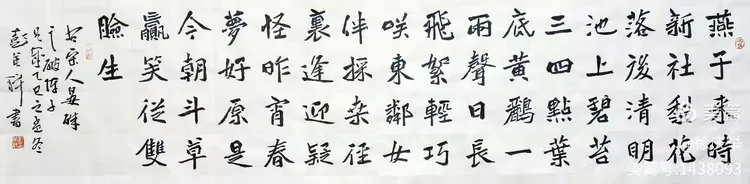 燕子來時
新社梨花
落後清明
池上碧苔
三四點葉
底黃鸝一
兩聲日長
飛絮輕巧
咲東鄰女
伴採桑徑
裏逢迎疑
怪昨宵春
夢好原是
今朝斗草
贏笑從雙
臉生
宋人晏殊
之破陣子
乙巳之孟冬
彭 祥書
美篇
美篇号:1438093